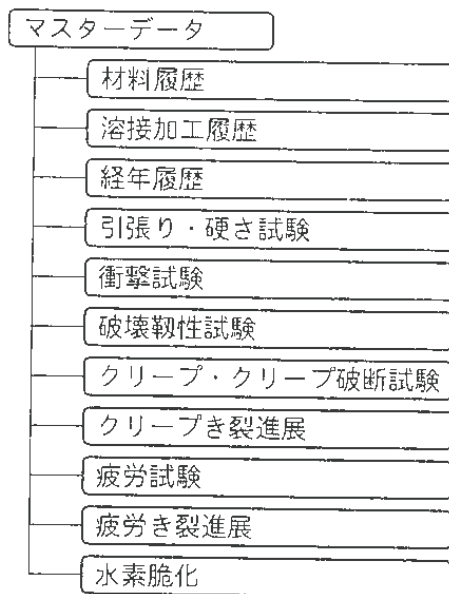 マスターデータ
材料履歴
溶接加工履歴
経年履歴
引張り・硬さ試験
衝撃試験
破壊靱性試験
クリープ・クリープ破断試験
クリープき裂進展
疲労試験
疲労き裂進展
水素脆化